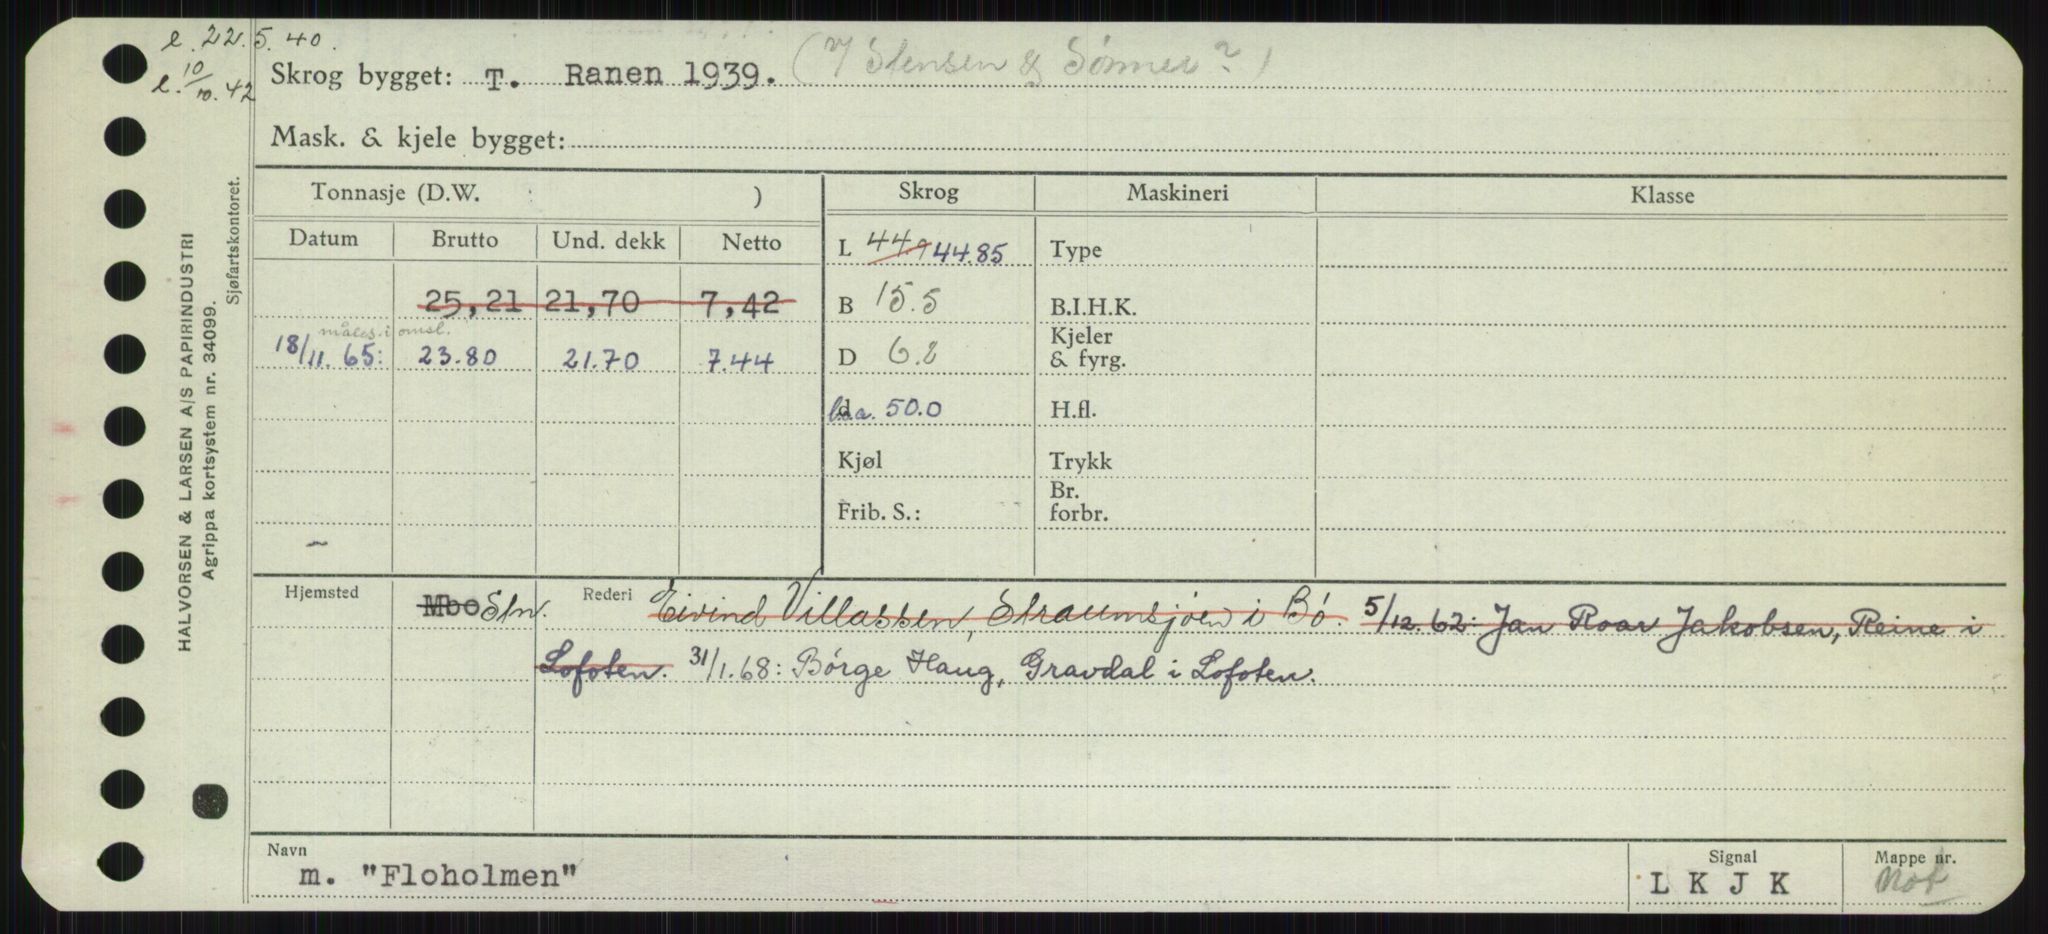 l. 22.5.40.
l. 10/10.42
Skrog bygget: T. Ranen 1939. ( Stensen & Sønner ? )
Mask. & kjele bygget:
Tonnasje (D.W. )
Skrog
Maskineri
Klasse
Datum Brutto Und. dekk Netto
25,21 21,70 7,42
måles i omsl.
18/11.65: 23.80 21.70 7.44
L 44,9 44.85
B 15.5
D 6.2
d l.o.a. 50.0
Kjøl
Frib. S.:
Type
B.I.H.K.
Kjeler
& fyrg.
H.fl.
Trykk
Br.
forbr.
Hjemsted Mbo Stn. Rederi Eivind Villassen, Straumsjøen i Bø. 5/12.62: Jan Roar Jakobsen, Reine i
Lofoten. 31/1.68: Børge Haug, Gravdal i Lofoten.
Navn
m. "Floholmen"
Signal
L K J K
Mappe nr.
Not
HALVORSEN & LARSEN A/S PAPIRINDUSTRI
Agrippa kortsystem nr. 34099.
Sjøfartskontoret.